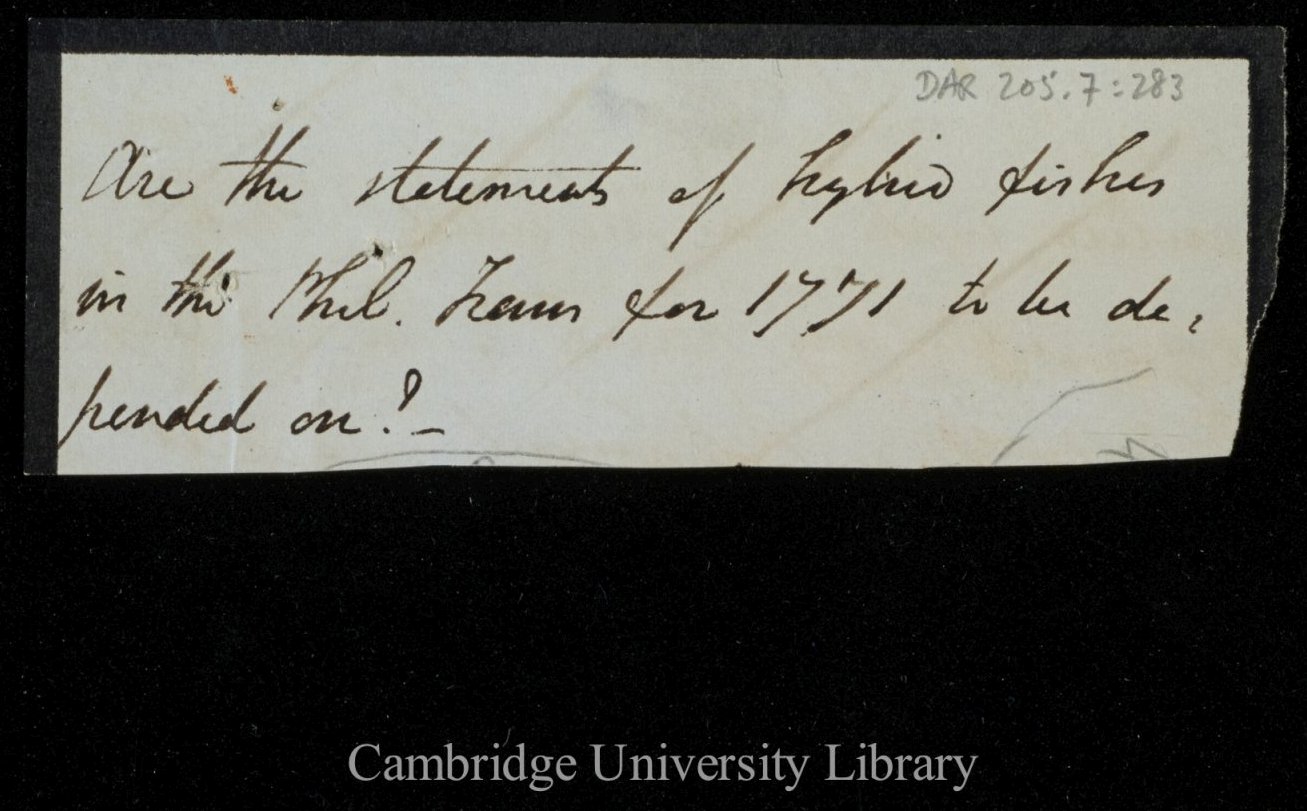 DAR 205.7:283
Are the statements of hybrid fishes
in the Phil. Trans for 1771 to be de-
pended on? –
Cambridge University Library